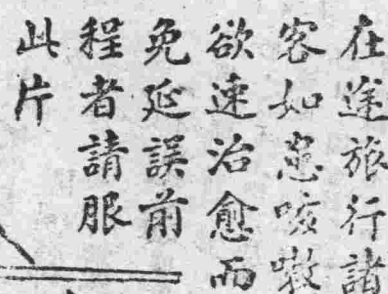 在途旅行諸
客如患咳嗽
欲速治愈而
免延誤前
程者請服
此片